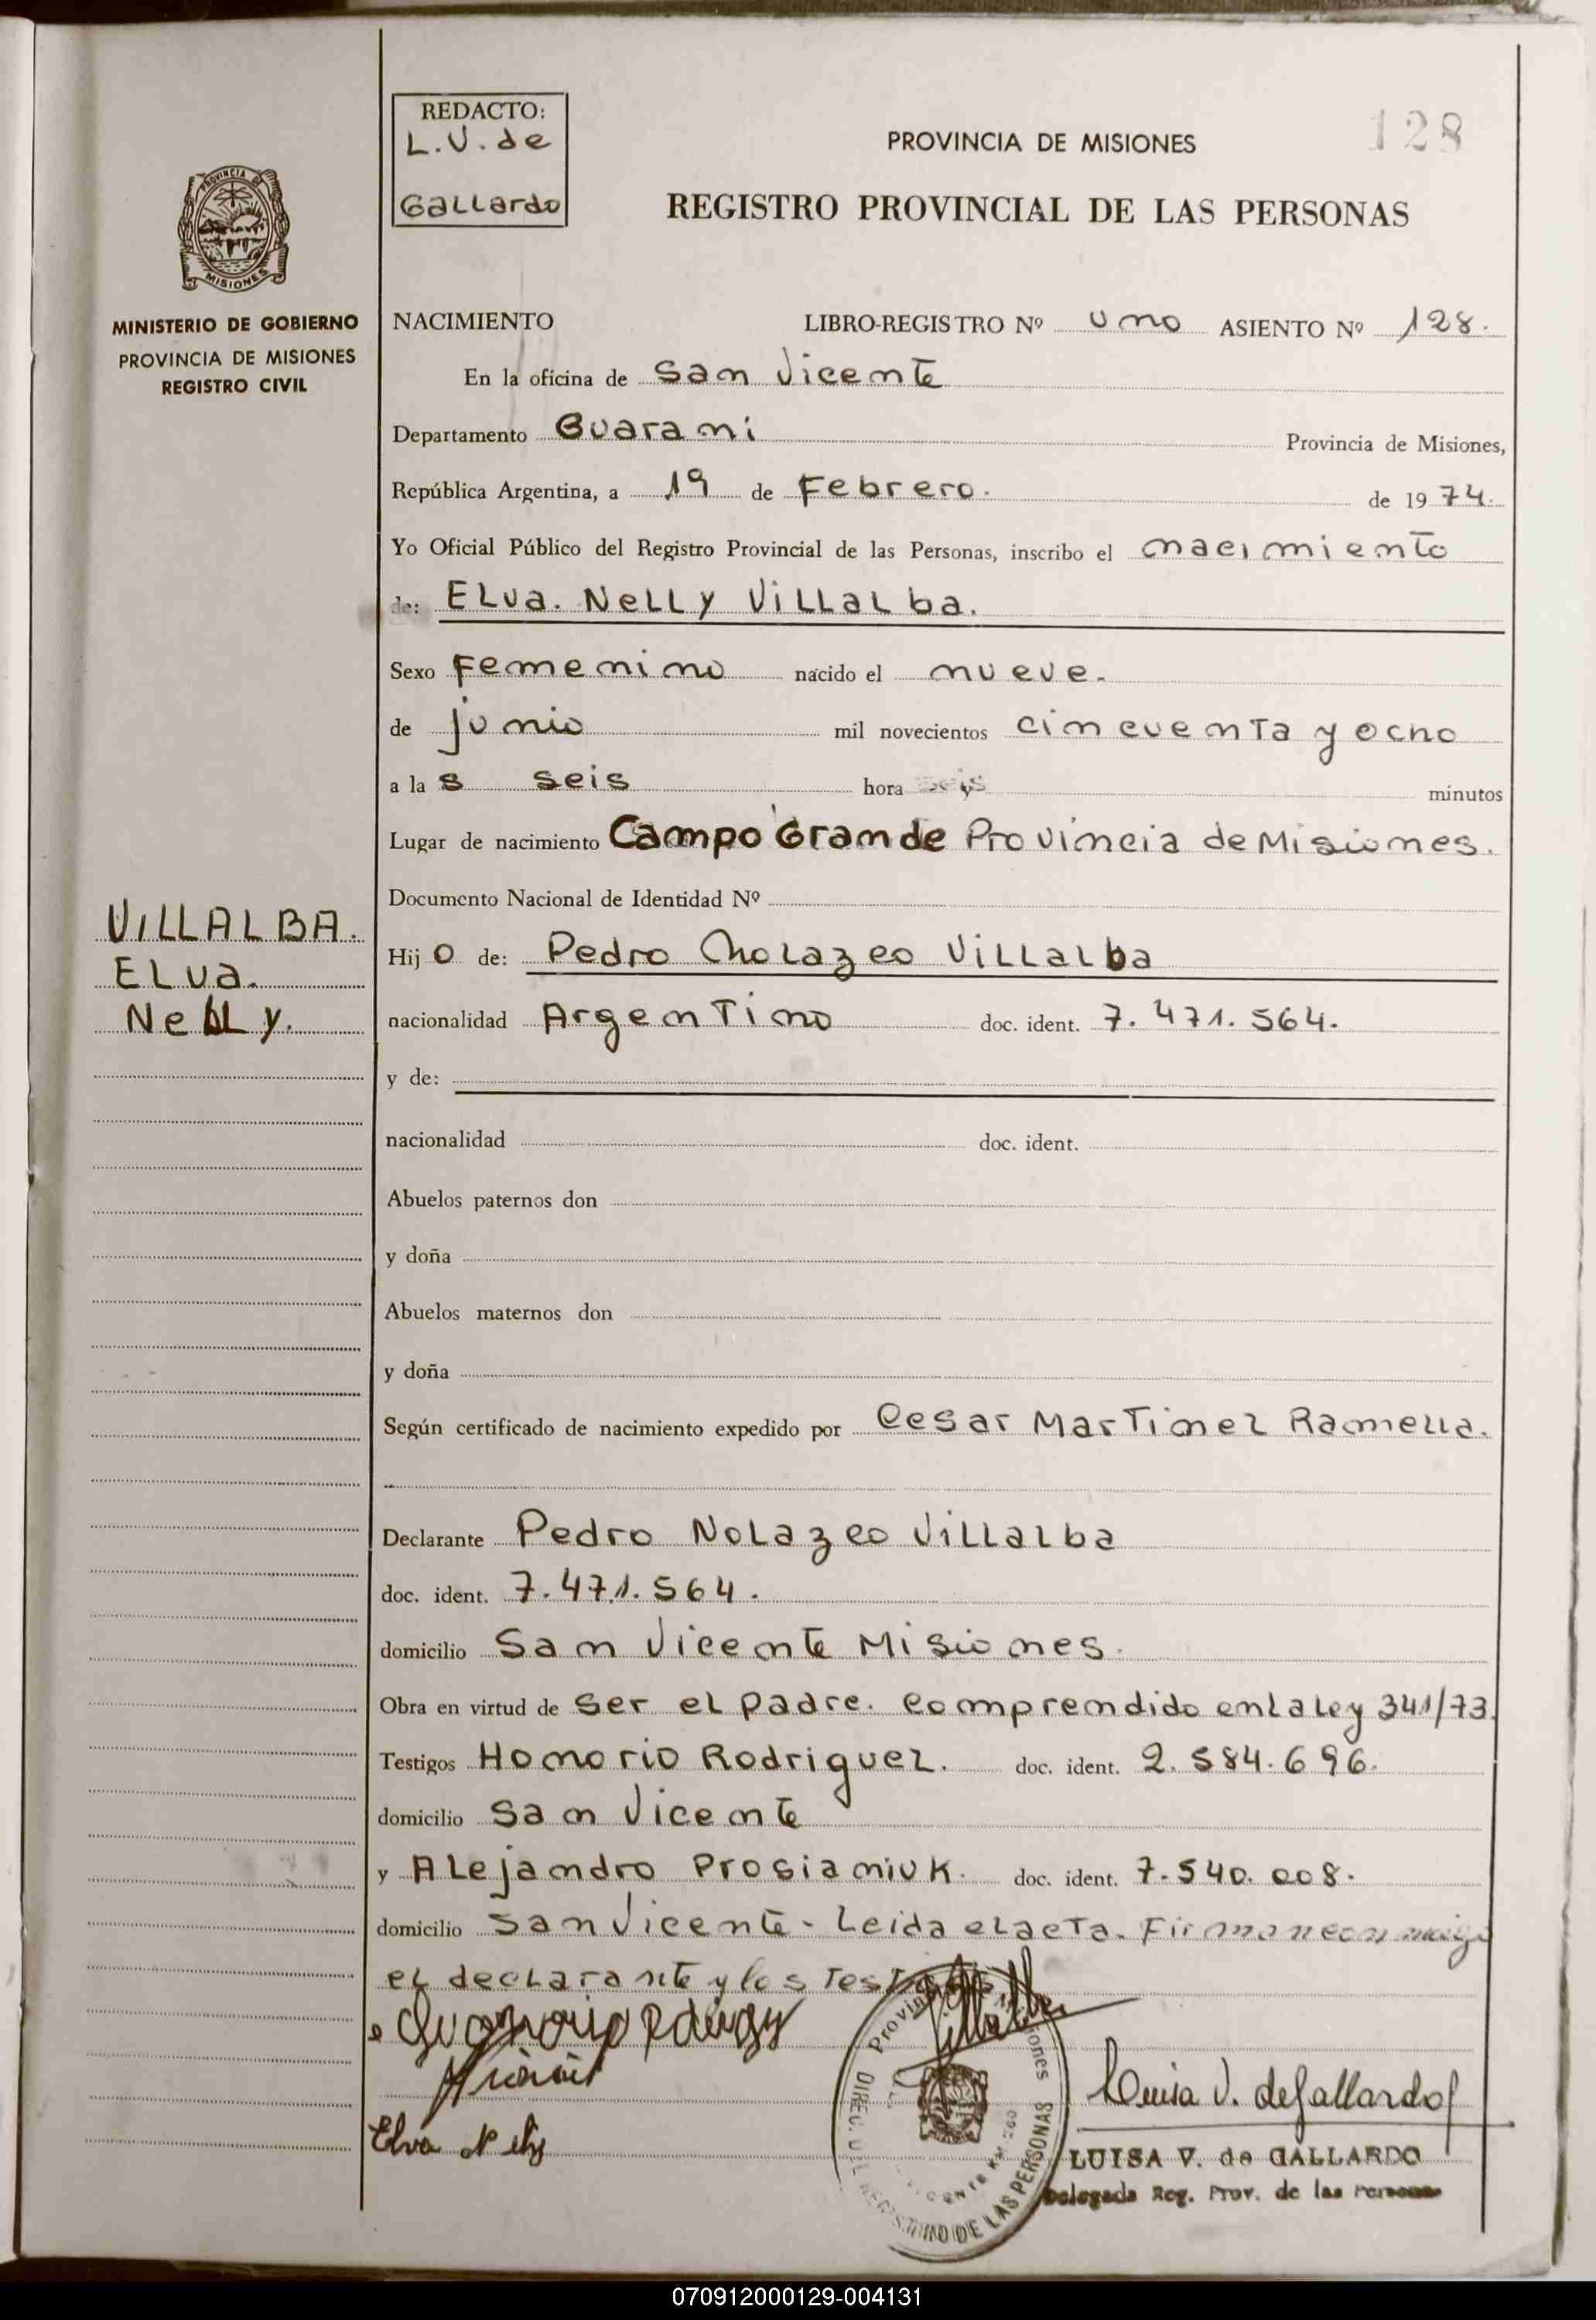 REDACTO:
L.V. de
Gallardo
PROVINCIA DE MISIONES
128
REGISTRO PROVINCIAL DE LAS PERSONAS
PROVINCIA DE
MISIONES
MINISTERIO DE GOBIERNO
PROVINCIA DE MISIONES
REGISTRO CIVIL
NACIMIENTO LIBRO-REGISTRO Nº Uno ASIENTO Nº 128.
En la oficina de San Vicente
Departamento Guarani Provincia de Misiones,
República Argentina, a 19 de Febrero. de 1974.
Yo Oficial Público del Registro Provincial de las Personas, inscribo el nacimiento
de: Elva. Nelly Villalba.
Sexo Femenino nacido el nueve.
de junio mil novecientos cincuenta y ocho
a las seis hora minutos
Lugar de nacimiento Campo Grande Provincia de Misiones.
Documento Nacional de Identidad Nº
VILLALBA.
Elva.
Nelly.
Hijo de: Pedro Nolazco Villalba
nacionalidad Argentino doc. ident. 7.471.564.
y de:
nacionalidad doc. ident.
Abuelos paternos don
y doña
Abuelos maternos don
y doña
Según certificado de nacimiento expedido por Cesar Martinez Ramella.
Declarante Pedro Nolazco Villalba
doc. ident. 7.471.564.
domicilio San Vicente Misiones.
Obra en virtud de ser el padre. Comprendido en la Ley 341/73.
Testigos Honorio Rodriguez. doc. ident. 2.584.696.
domicilio San Vicente
y Alejandro Prosianiuk. doc. ident. 7.540.008.
domicilio San Vicente - Leida el acta. Firman conmigo
el declarante y los testigos
Elva Nelly
Luisa V. de Gallardo
LUISA V. de GALLARDO
Delegada Reg. Prov. de las Personas
070912000129-004131